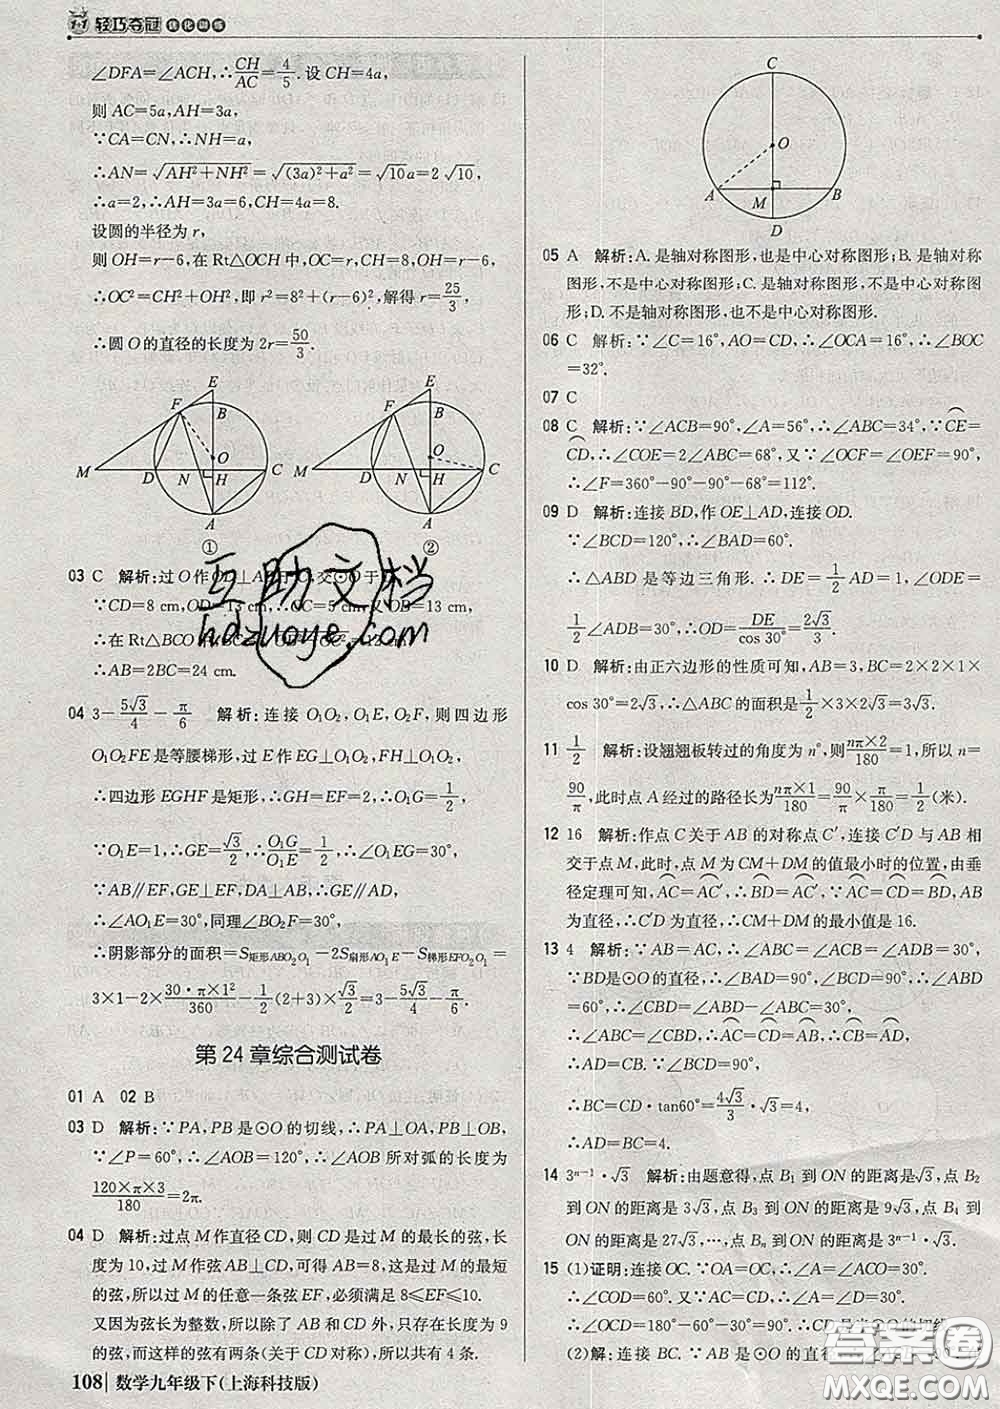 1+1 轻巧夺冠 优化训练
∠DFA=∠ACH,∴CH/AC=4/5.设CH=4a,
则AC=5a,AH=3a,
∵CA=CN,∴NH=a,
∴AN=√(AH²+NH²)=√((3a)²+a²)=√10a=2√10,
∴a=2,∴AH=3a=6,CH=4a=8.
设圆的半径为r,
则OH=r−6,在Rt△OCH中,OC=r,CH=8,OH=r−6,
∴OC²=CH²+OH²,即r²=8²+(r−6)²,解得r=25/3,
∴圆O的直径的长度为2r=50/3.
E
F B
O
M D N H C
A
①
E
F B
O
M D N H C
A
②
03 C 解析:过O作OD⊥AB于C,交⊙O于D,
∵CD=8 cm,OD=13 cm,∴OC=5 cm,又∵OB=13 cm,
∴在Rt△BCO中,BC=
=12 cm,
∴AB=2BC=24 cm.
04 3−5√3/4−π/6 解析:连接O₁O₂,O₁E,O₂F,则四边形
O₁O₂FE是等腰梯形,过E作EG⊥O₁O₂,FH⊥O₁O₂,
∴四边形EGHF是矩形,∴GH=EF=2,∴O₁G=1/2,
∵O₁E=1,∴GE=√3/2,∴O₁G/O₁E=1/2,∴∠O₁EG=30°,
∵AB∥EF,GE⊥EF,DA⊥AB,∴GE∥DA,
∴∠AO₁E=30°,同理∠BO₂F=30°,
∴阴影部分的面积=S矩形ABO₂O₁−2S扇形AO₁E−S梯形EFO₂O₁=
3×1−2×30·π×1²/360−1/2(2+3)×√3/2=3−5√3/4−π/6.
第24章综合测试卷
01 A 02 B
03 D 解析:∵PA,PB是⊙O的切线,∴PA⊥OA,PB⊥OB,
∵∠P=60°,∴∠AOB=120°,∴∠AOB所对弧的长度为
120×π×3/180=2π.
04 D 解析:过点M作直径CD,则CD是过M的最长的弦,长
度为10,过M作弦AB⊥CD,可得AB=8,这是过M的最短
的弦,所以过M的任意一条弦EF,必须满足8≤EF≤10.
又因为弦长为整数,所以除了AB和CD外,只存在长度为9
的弦,而这样的弦有两条(关于CD对称),所以共有4条.
C
O
A M B
D
05 A 解析:A.是轴对称图形,也是中心对称图形;B.是轴对称
图形,不是中心对称图形;C.是轴对称图形,不是中心对称图
形;D.不是轴对称图形,也不是中心对称图形.
06 C 解析:∵∠C=16°,AO=CD,∴∠OCA=16°,∴∠BOC
=32°.
07 C
08 C 解析:∵∠ACB=90°,∠A=56°,∴∠ABC=34°.∵CE=
CD,∴∠COE=2∠ABC=68°,又∵∠OCF=∠OEF=90°,
∴∠F=360°−90°−90°−68°=112°.
09 D 解析:连接BD,作OE⊥AD,连接OD.
∵∠BCD=120°,∴∠BAD=60°.
∴△ABD是等边三角形.∴DE=1/2AD=1,∠ODE=
1/2∠ADB=30°,∴OD=DE/cos 30°=2√3/3.
10 D 解析:由正六边形的性质可知,AB=3,BC=2×2×1×
cos 30°=2√3,∴△ABC的面积是1/2×3×2√3=3√3.
11 1/2 解析:设翘翘板转过的角度为n°,则nπ×2/180=1,所以n=
90/π,此时点A经过的路径长为nπ×1/180=90/180=1/2(米).
12 16 解析:作点C关于AB的对称点C′,连接C′D与AB相
交于点M,此时,点M为CM+DM的值最小时的位置,由垂
径定理可知,AC=AC′,∴BD=AC′.∵AC=CD=BD,AB
为直径,∴C′D为直径,∴CM+DM的最小值是16.
13 4 解析:∵AB=AC,∴∠ABC=∠ACB=∠ADB=30°,
∵BD是⊙O的直径,∴∠BAD=90°,∠BCD=90°,∠ABD
=60°,∴∠CBD=∠ABD−∠ABC=30°,
∴∠ABC=∠CBD,∴AC=CD=AB,∴CB=AD,
∴AD=CB.∵∠BCD=90°,
∴BC=CD·tan60°=4√3/3·√3=4,
∴AD=BC=4.
14 3ⁿ⁻¹·√3 解析:由题意得,点B₁到ON的距离是√3,点B₂
到ON的距离是3√3,点B₃到ON的距离是9√3,点B₄到
ON的距离是27√3,…,点Bₙ到ON的距离是3ⁿ⁻¹·√3.
15 (1)证明:连接OC.∵OA=OC,∴∠A=∠ACO=30°.
∴∠COD=60°.又∵∠D=30°,
∴∠OCD=180°−60°−30°=90°.∴CD是⊙O的切线.
(2)解:∵⊙O的直径
108 数学九年级下(上海科技版)
互助文档
hdzuoye.com
答案圈
MXQE.COM